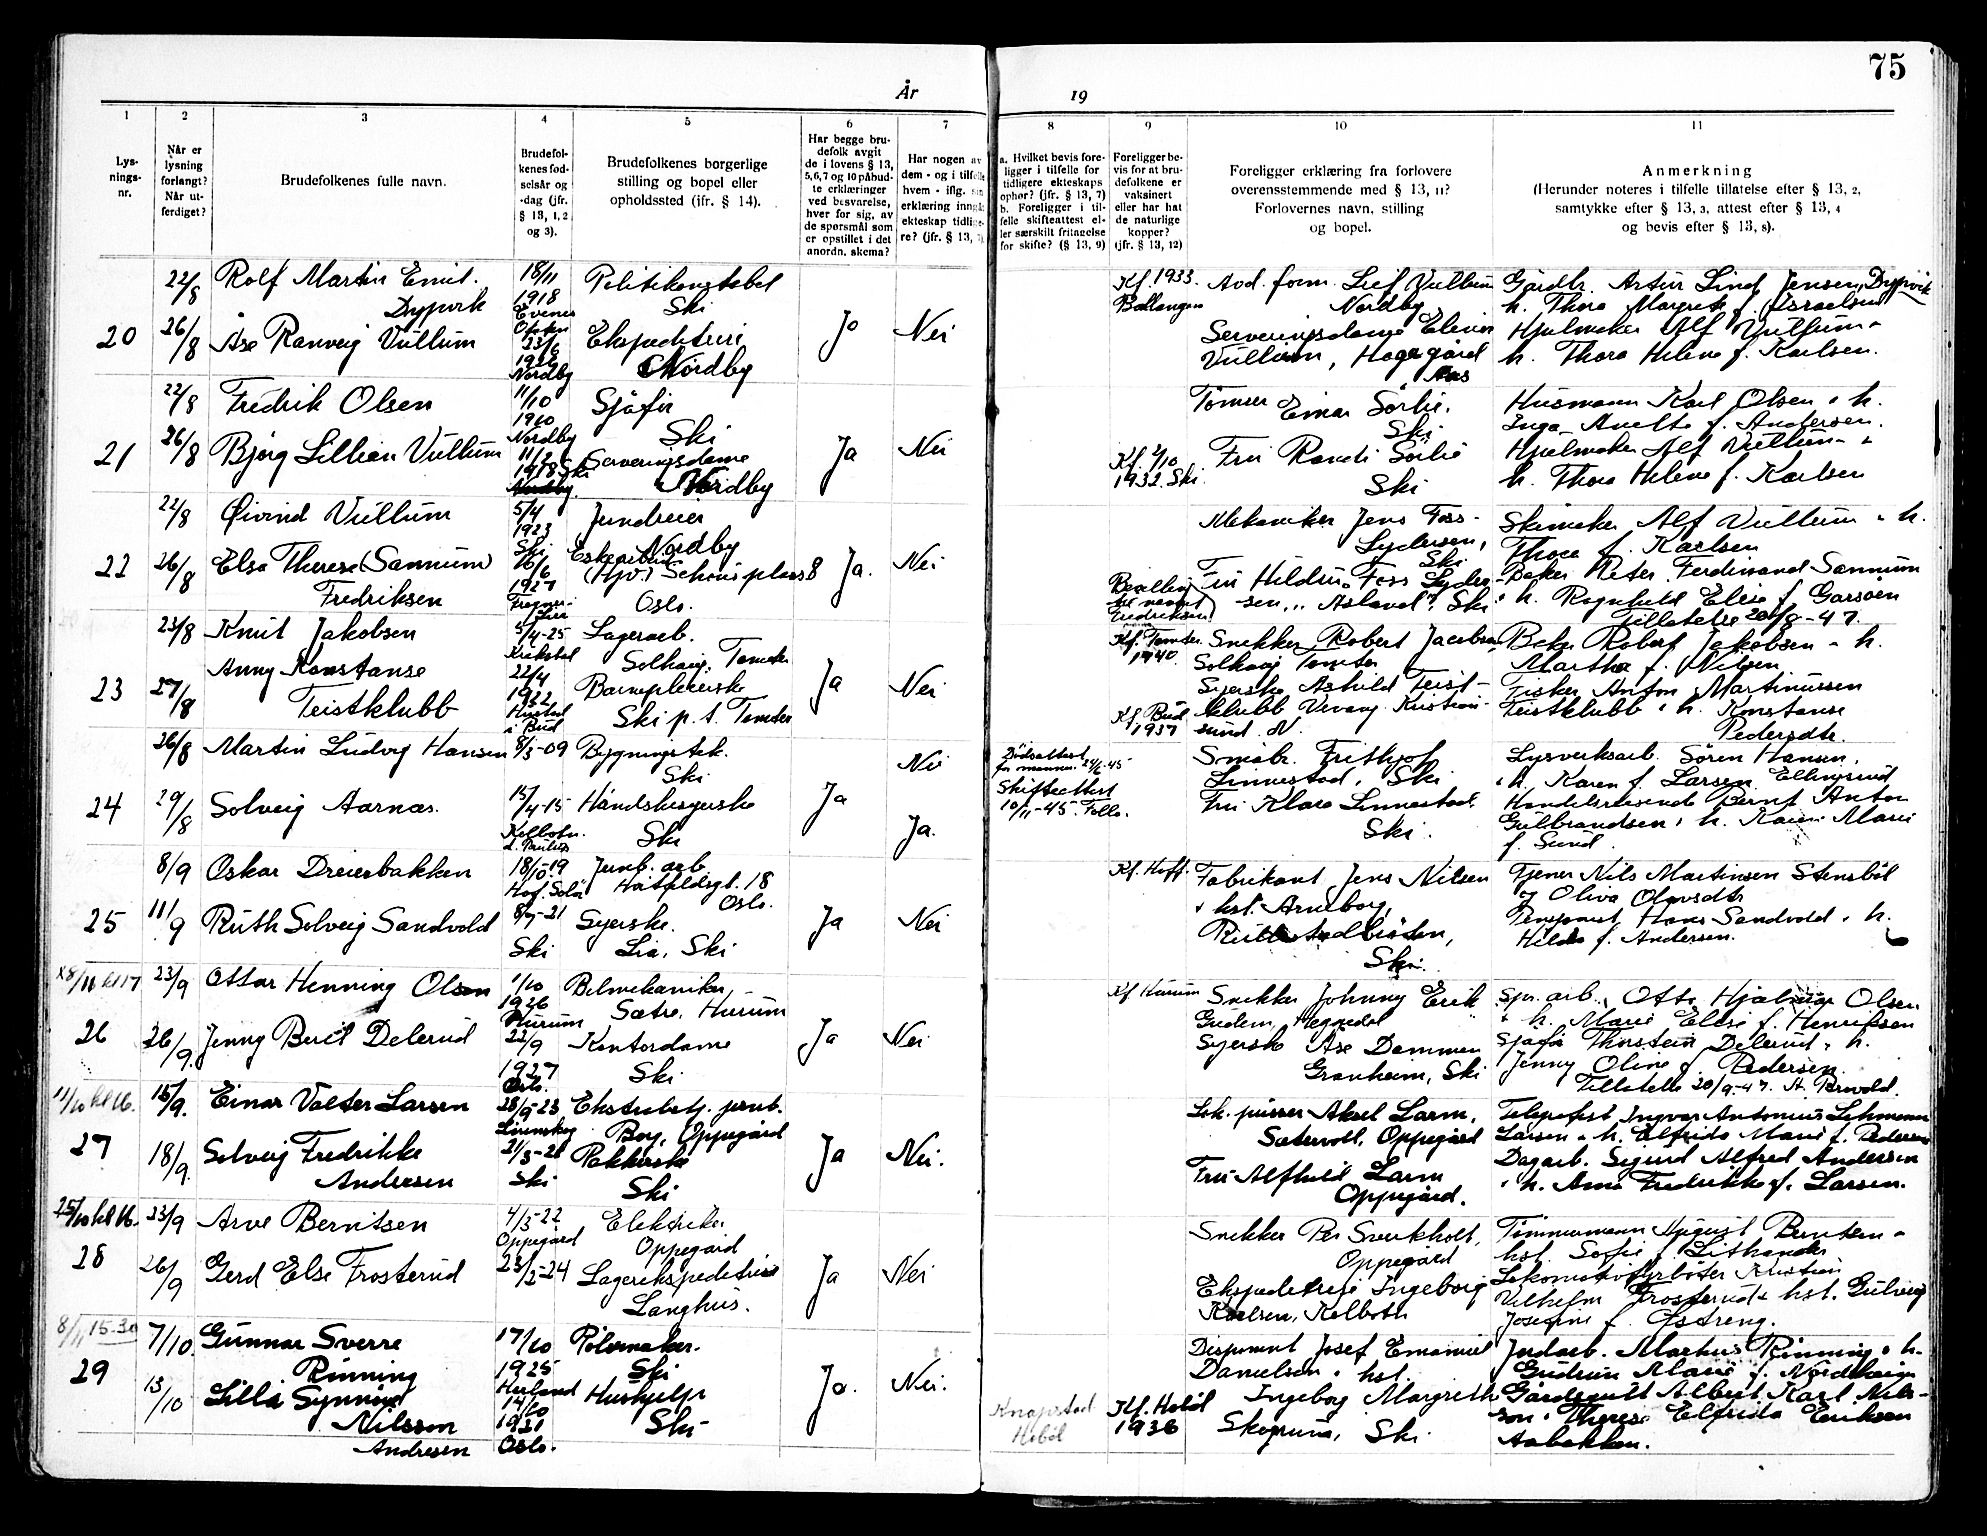 75
År 19
1 2 3 4 5 6 7 8 9 10 11
Lys-
nings-
nr.
Når er
lysning
forlangt?
Når ut-
ferdiget?
Brudefolkenes fulle navn.
Brudefol-
kenes fød-
selsår og
-dag (jfr.
§ 13, 1, 2
og 3).
Brudefolkenes borgerlige
stilling og bopel eller
opholdssted (jfr. § 14).
Har begge bru-
defolk avgit
de i lovens § 13,
5, 6, 7 og 10 påbud-
te erklæringer
ved besvarelse,
hver for sig, av
de spørsmål som
er opstillet i det
anordn. skema?
Har nogen av
dem - og i tilfelle
hvem - iflg. sin
erklæring inngått
ekteskap tidlige-
re? (jfr. § 13, 7).
a. Hvilket bevis fore-
ligger i tilfelle for
tidligere ekteskaps
ophør? (jfr. § 13, 7)
b. Foreligger i til-
felle skifteattest el-
ler særskilt fritagelse
for skifte? (§ 13, 9)
Foreligger be-
vis for at bru-
defolkene er
vaksinert
eller har hat
de naturlige
kopper?
(jfr. § 13, 12)
Foreligger erklæring fra forlovere
overensstemmende med § 13, 11?
Forlovernes navn, stilling
og bopel.
Anmerkning
(Herunder noteres i tilfelle tillatelse efter § 13, 2,
samtykke efter § 13, 3, attest efter § 13, 4
og bevis efter § 13, 8).
20
22/8
26/8
Rolf Martin Emil.
Drypvik
Åse Ranveig Vullum
18/11
1918
Evenes
Ofoten
23/6
1926
Nordby
Politikonstabel
Ski
Ekspeditrise
Nordby
Ja
Nei
Kf. 1933.
Ballangen
Avd. form. Leif Vullum
Nordby
Serveringsdame Elinor
Vullum, Hagegård
Aas
Gårdbr. Artur Lind Jensen Drypvik
h. Thora Magrete f. Israelsen
Hjulmaker Alf Vullum
h. Thora Helene f. Karlsen.
21
22/8
26/8
Fredrik Olsen
Bjørg Lillian Vullum
11/10
1910
Nordby
11/2
1918 Ski
Sjåfør
Ski
Serveringsdame
Nordby
Ja
Nei
Kf. 2/10
1932. Ski
Tømrer Einar Sørlie.
Ski
Fru Randi Sørlie
Ski
Husmann Karl Olsen & h.
Inga Anette f. Andersen.
Hjulmaker Alf Vullum &
h. Thora Helene f. Karlsen
22
22/8
26/8
Øivind Vullum
Elsa Therese (Sannum)
Fredriksen
5/4
1923
Ski
16/6
1927
Jerndreier
Nordby
(Hjv.) Schous plass 8
Oslo.
Ja.
Nei
Bevilling
til navnet
Fredriksen
Mekaniker Jens Foss-
Lydersen,
Ski
Fru Hildur Foss Lyder-
sen, "Asland", Ski
Skimaker Alf Vullum & h.
Thora f. Karlsen
Baker Peter Ferdinand Sannum
& h. Ragnhild Elise f. Garsøen
Tillatelse 20/8-47.
23
23/8
27/8
Knut Jakobsen
Anny Konstanse
Teistklubb
5/4-25
Kråkstad
22/4
1922
Hustad
i Bud
Lagerarb.
Solhaug, Tomter
Barnepleierske
Ski p.t. Tomter
Ja
Nei
Kf. Tomter
1940.
Kf. Bud
1937
Snekker Robert Jacobsen
Solhaug Tomter
Syerske Åshild Teist-
klubb Vevang Kristian-
sund. N.
Baker Robert Jakobsen & h.
Martha f. Nilsen
Fisker Anton Martinussen
Teistklubb & h. Konstanse
Pedersdtr.
24
26/8
29/8
Martin Ludvig Hansen
Solveig Aarnæs.
8/3-09
15/4-15
Kolbotn.
Bygningstek.
Ski
Håndskesyerske
Ski
Ja
Nei
Ja.
Dødsattest
for mannen. 24/6-45
Skifteattest
10/11-45. Follo.
Småbr. Frithjof
Linnestad, Ski
Fru Klara Linnestad.
Ski.
Lysverksarb. Søren Hansen,
& h. Karen f. Larsen Ellingsrud
Handelsreisende Bernt Anton
Gulbrandsen & h. Karen Marie
f. Sund.
25
8/9
11/9
Oskar Dreierbakken
Ruth Solveig Sandvold
18/10-19
Hof. Solør
8/7-21
Ski
Jernb. arb.
Hatfeldtsgt. 18
Oslo.
Syerske.
Lia, Ski
Ja
Nei
Kf. Hoff.
Fabrikant Jens Nilsen
& hst. Arneborg,
Ski.
Gjenr Nils Martinsen Stensbøl
og Oliva Olavsdtr
Pensjonist Hans Sandvold & h.
Hilda f. Andersen.
8/11 kl 17
26
23/9
26/9.
Ottar Henning Olsen
Jenny Buel Delerud
1/10
1926
Hurum
22/9
1927
Oslo.
Bilmekaniker,
Sætre, Hurum
Kontordame
Ski
Ja
Nei
Kf Hurum
Snekker Johnny Erik
Gudem, Heggedal
Syerske Åse Dammen
Granheim, Ski
Spr. arb. Otto Hjalmar Olsen
& h. Marie Elise f. Henriksen
Sjåfør Thorstein Delerud & h.
Jenny Oline f. Pedersen.
Tillatelse 20/9-47.
11/10 kl 16.
27
15/9.
18/9.
Einar Valter Larsen
Solveig Fredrikke
Andersen
28/9-23
Lørenskog
21/3-21
Ski
Ekstrabetj. jernb.
Berg, Oppegård
Pakkerske
Ski
Ja
Nei.
Lok. pusser Aksel Larm,
Sætervoll, Oppegård
Fru Alfhild Larm
Oppegård.
Telegrafist Ingvar Antonius Lehmann
Larsen & h. Elfrida Marie f. Pedersen
Dagarb. Sigurd Alfred Andersen
& h. Anna Fredrikke f. Larsen.
25/10 kl 16.
28
23/9
26/9
Arve Berntsen
Gerd Else Frosterud
4/3-22
Oppegård
23/2-24
Elektriker
Oppegård
Lagerekspeditrise
Langhus.
Ja
Nei
Snekker Per Sverkholt,
Oppegård
Ekspeditrise Ingeborg
Karlsen, Kolbotn
Tømmermann August Berntsen &
hst. Sofie f. Lithander
Lokomotivfyrbøter Kristian
Vilhelm Frosterud & hst. Gulvig
Josefine f. Østreng.
8/11 15-30
29
7/10.
13/10
Gunnar Sverre
Rinning
Lilla Synnøve
Nilsson
Andresen
17/10
1925
Herland
14/10
1921
Oslo.
Rørmaker.
Ski
Hushjelp
Ski
Ja.
Nei.
Knapstad
Hobøl
Kf. Hobøl
1936
Disponent Josef Emanuel
Danielsen & hst.
Ingeborg Margrethe
Skogrund, Ski
Jordarb. Markus Rinning & h.
Gudrun Marie f. Nordhagen
Gårdsgutt Albert Karl Nils-
son & Therese Elfrida Eriksen
Aabakken.